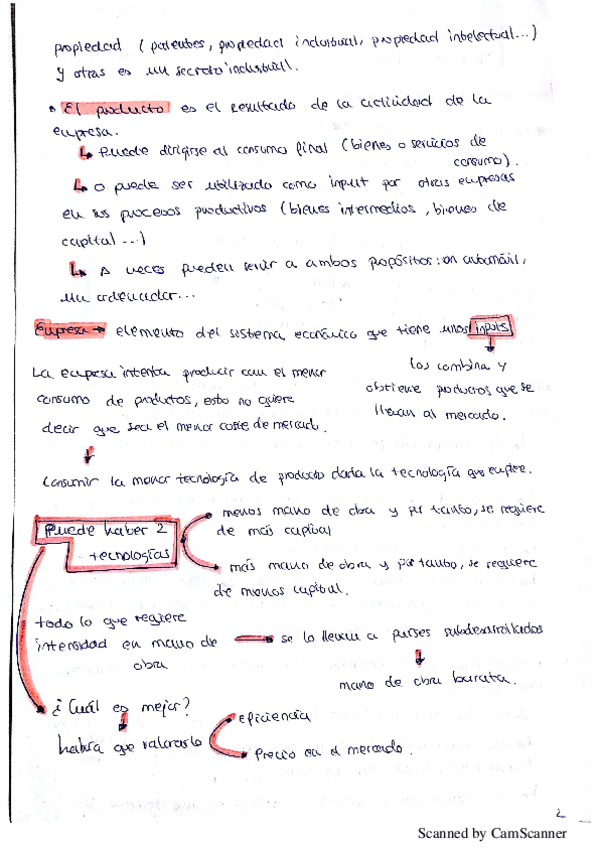 propiedad (patentes, propiedad industrial, propiedad intelectual...)
y otras es un secreto industrial.
• El producto es el resultado de la actividad de la
empresa.
↳ Puede dirigirse al consumo final (bienes o servicios de
consumo).
↳ o puede ser utilizado como input por otras empresas
en sus procesos productivos (bienes intermedios, bienes de
capital...)
↳ A veces pueden servir a ambos propósitos: un automóvil,
un ordenador...
Empresa → elemento del sistema económico que tiene unos inputs
↓
los combina y
obtiene productos que se
llevan al mercado.
La empresa intenta producir con el menor
consumo de produtos, esto no quiere
decir que sea el menor coste de mercado.
↓
Consumir la menor tecnología de producto dada la tecnología que
Puede haber 2
tecnologías
menos mano de obra y por tanto, se requiere
de más capital
más mano de obra y por tanto, se requiere
de menos capital.
todo lo que requiere
intensidad en mano de
obra
se lo llevan a países subdesarrollados
↓
mano de obra barata.
¿Cuál es mejor?
↓
habría que valorarlo
eficiencia
Precio en el mercado.
2
Scanned by CamScanner